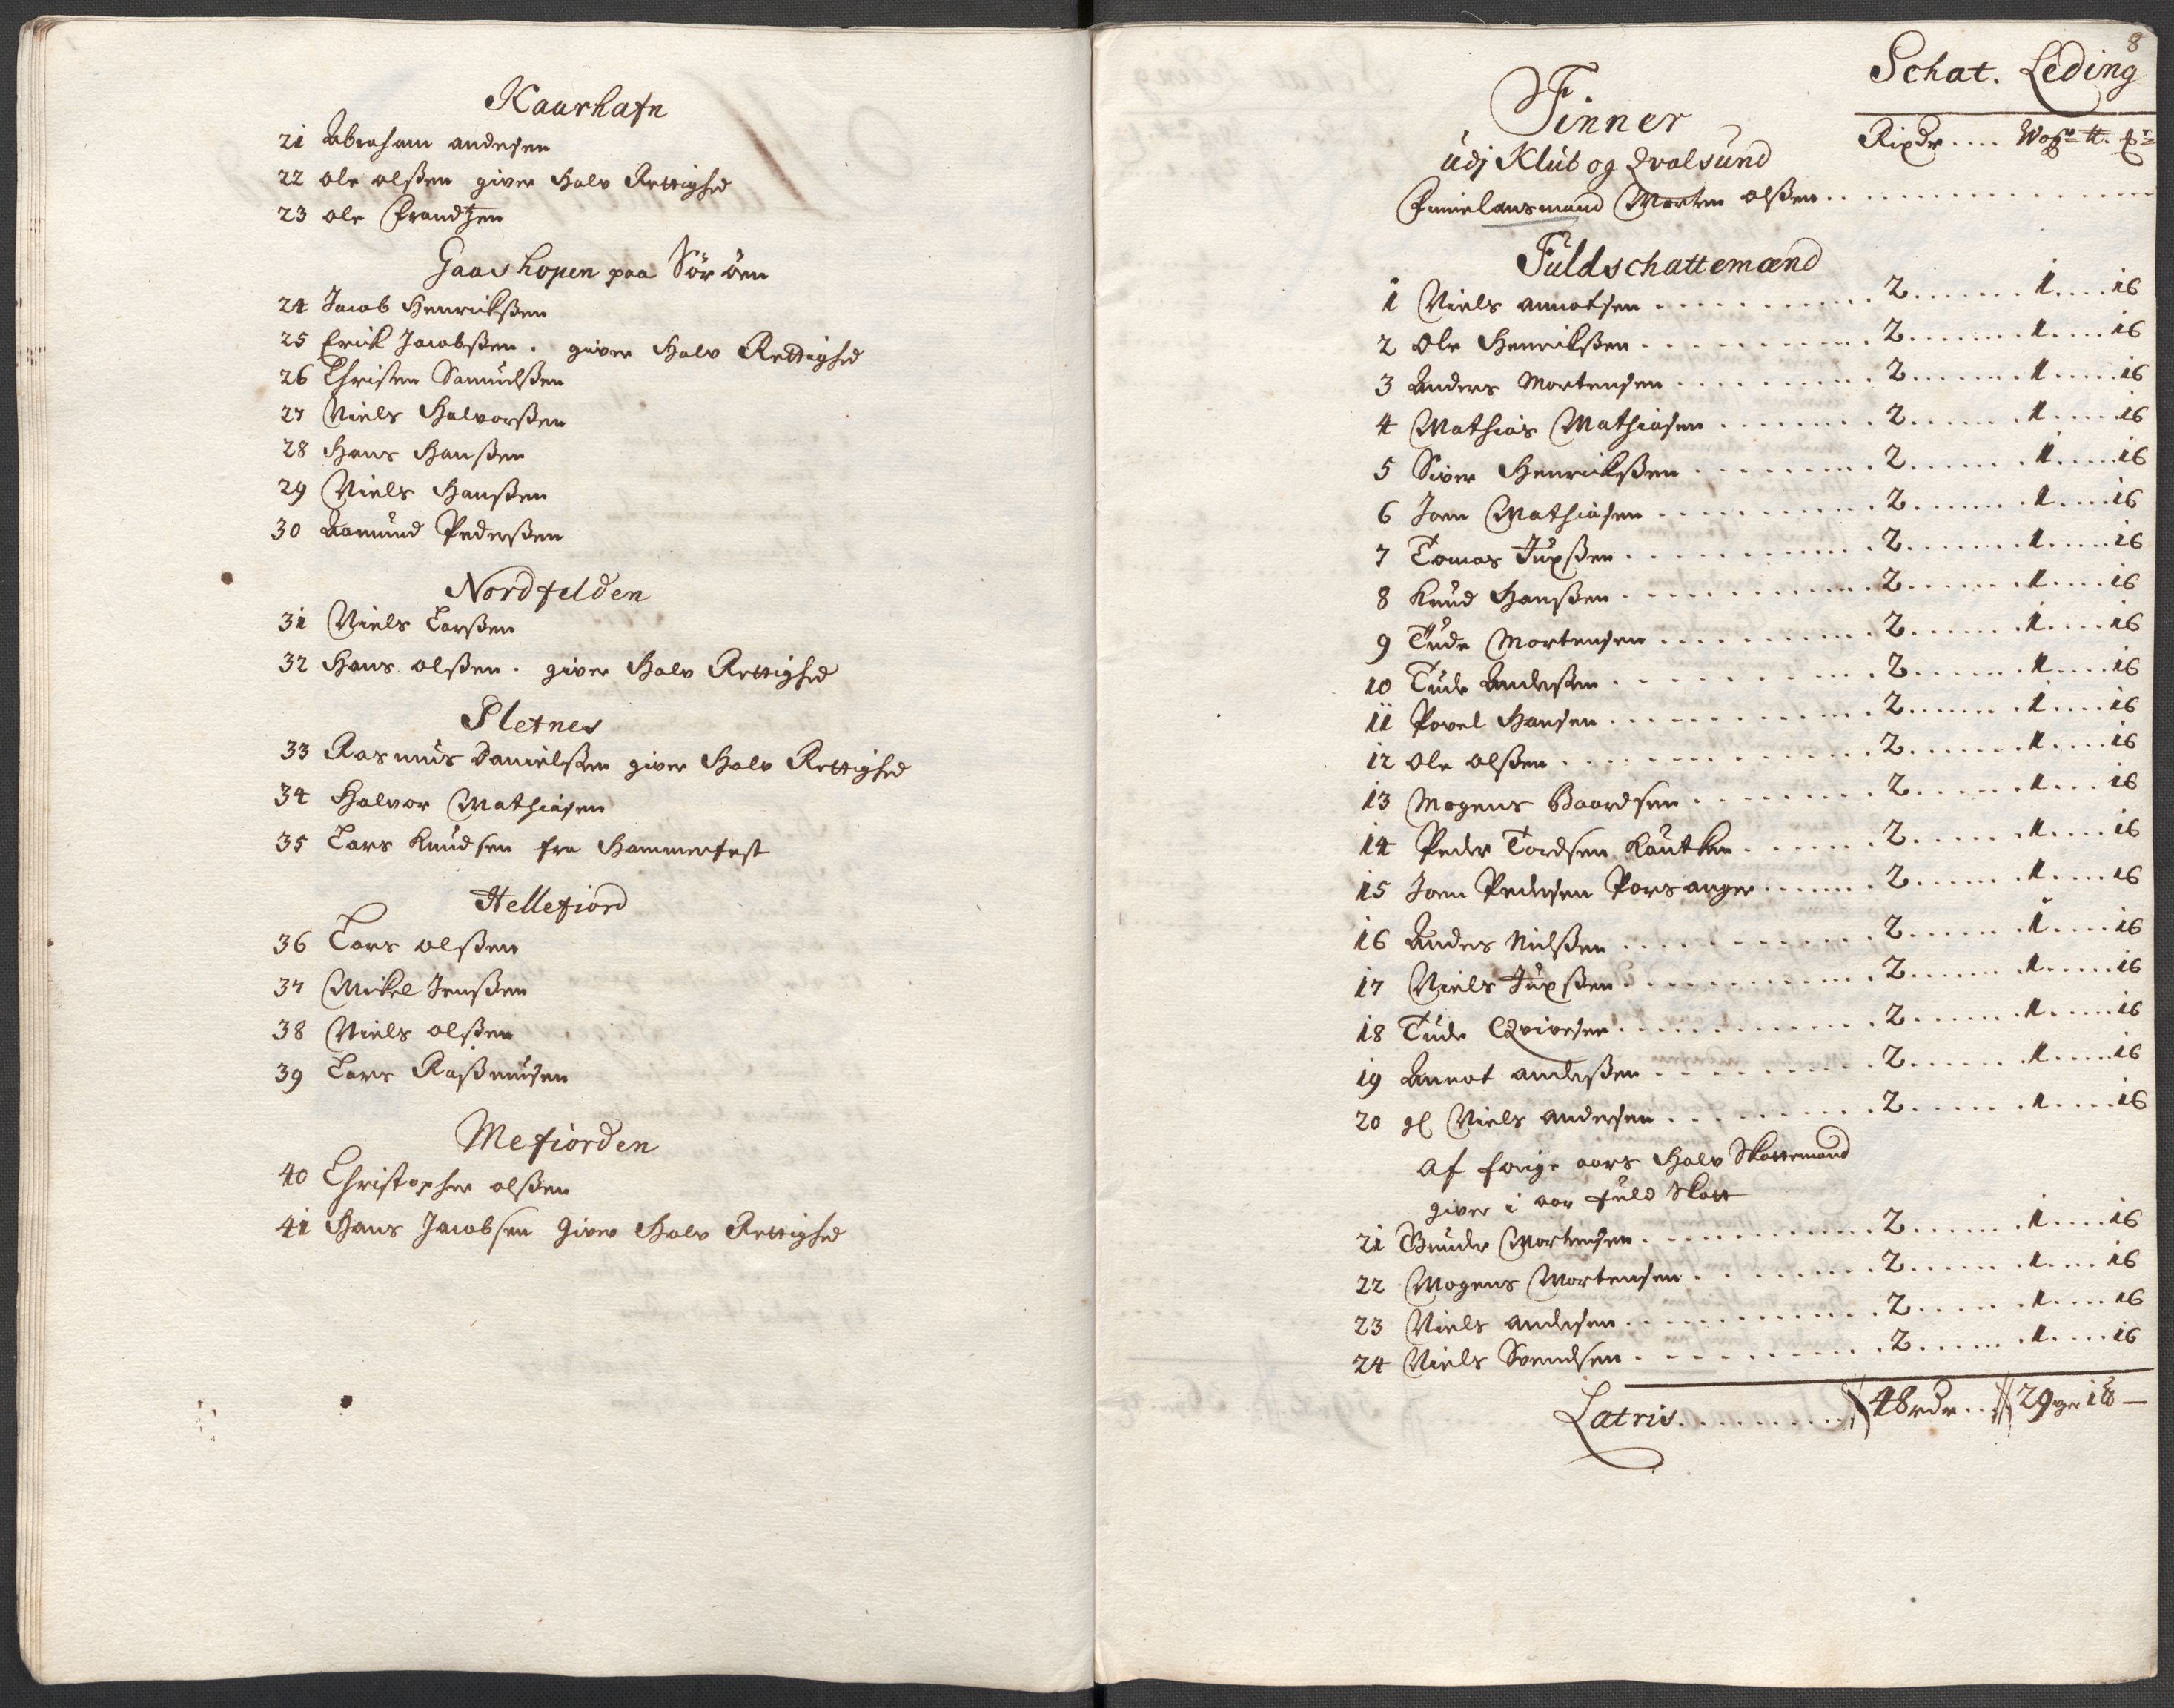 Kaarhafn
21 Abraham andersen
22 ole olsßen giver Halv Rettighed
23 ole Frandtzen
Gaashopen paa Söröen
24 Jacob Henrichßen
25 Erich Jacobßen. giver Halv Rettighed
26 Christen Samuelßen
27 Niels Halvorßen
28 Hans Hanßen
29 Niels Hanßen
30 Aamund Pederßen
Nordfelden
31 Niels Larßen
32 Hans olßen. giver Halv Rettighed
Sletnes
33 Rasmus Danielßen giver Halv Rettighed
34 Halvor Mathiasen
35 Lars Knudsen fra Hammerfest
Hellefiord
36 Lars olßen
37 Mikel Jenßen
38 Niels olßen
39 Lars Raßmusen
Mefiorden
40 Christopher olßen
41 Hans Jacobsen Giver Halv Rettighed
8
Schat. Leding
Finner
Rixdr.... Wog
udj Klub og Qvalsund
Finnelansmand Morten olßen
Fuldschattemænd
1 Niels annotsen 2 1 16
2 Ole Henrichßen 2 1 16
3 Anders Mortensen 2 1 16
4 Mathias Mathiasen 2 1 16
5 Siver Henrichßen 2 1 16
6 Joen Mathiasen 2 1 16
7 Tomas Jupßen 2 1 16
8 Knud Hanßen 2 1 16
9 Tude Mortensen 2 1 16
10 Tude Anderßen 2 1 16
11 Povel Hansen 2 1 16
12 Ole olßen 2 1 16
13 Mogens Baardsen 2 1 16
14 Peder Tordsen 2 1 16
15 Joen Pedersen Porsanger 2 1 16
16 Anders Nielßen 2 1 16
17 Niels Jupßen 2 1 16
18 Tude Qviveser 2 1 16
19 Annot anderßen 2 1 16
20 gl Niels andersen 2 1 16
af forige aars Halv Skattemand
giver i aar fuld Skatt
21 Gunder Mortensen 2 1 16
22 Mogens Mortensen 2 1 16
23 Niels andersen 2 1 16
24 Niels Svendsen 2 1 16
Latris 48 rdr 29